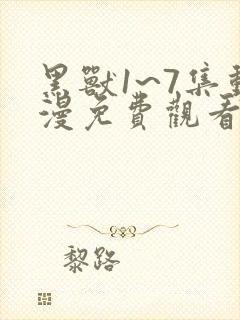 黑獸1~7集動
漫免費觀看
黎路